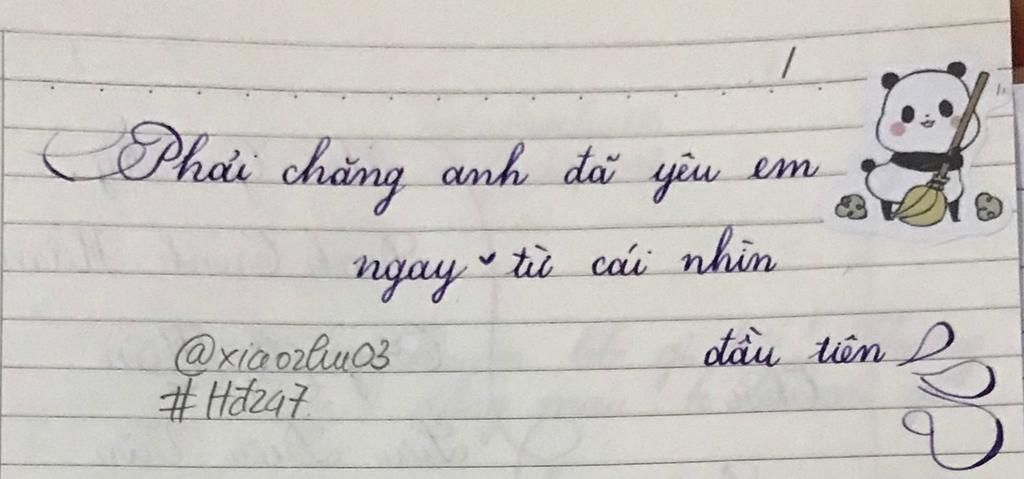 Phải chăng anh đã yêu em
ngay từ cái nhìn
đầu tiên
@xiaozhu03
#Hđ247